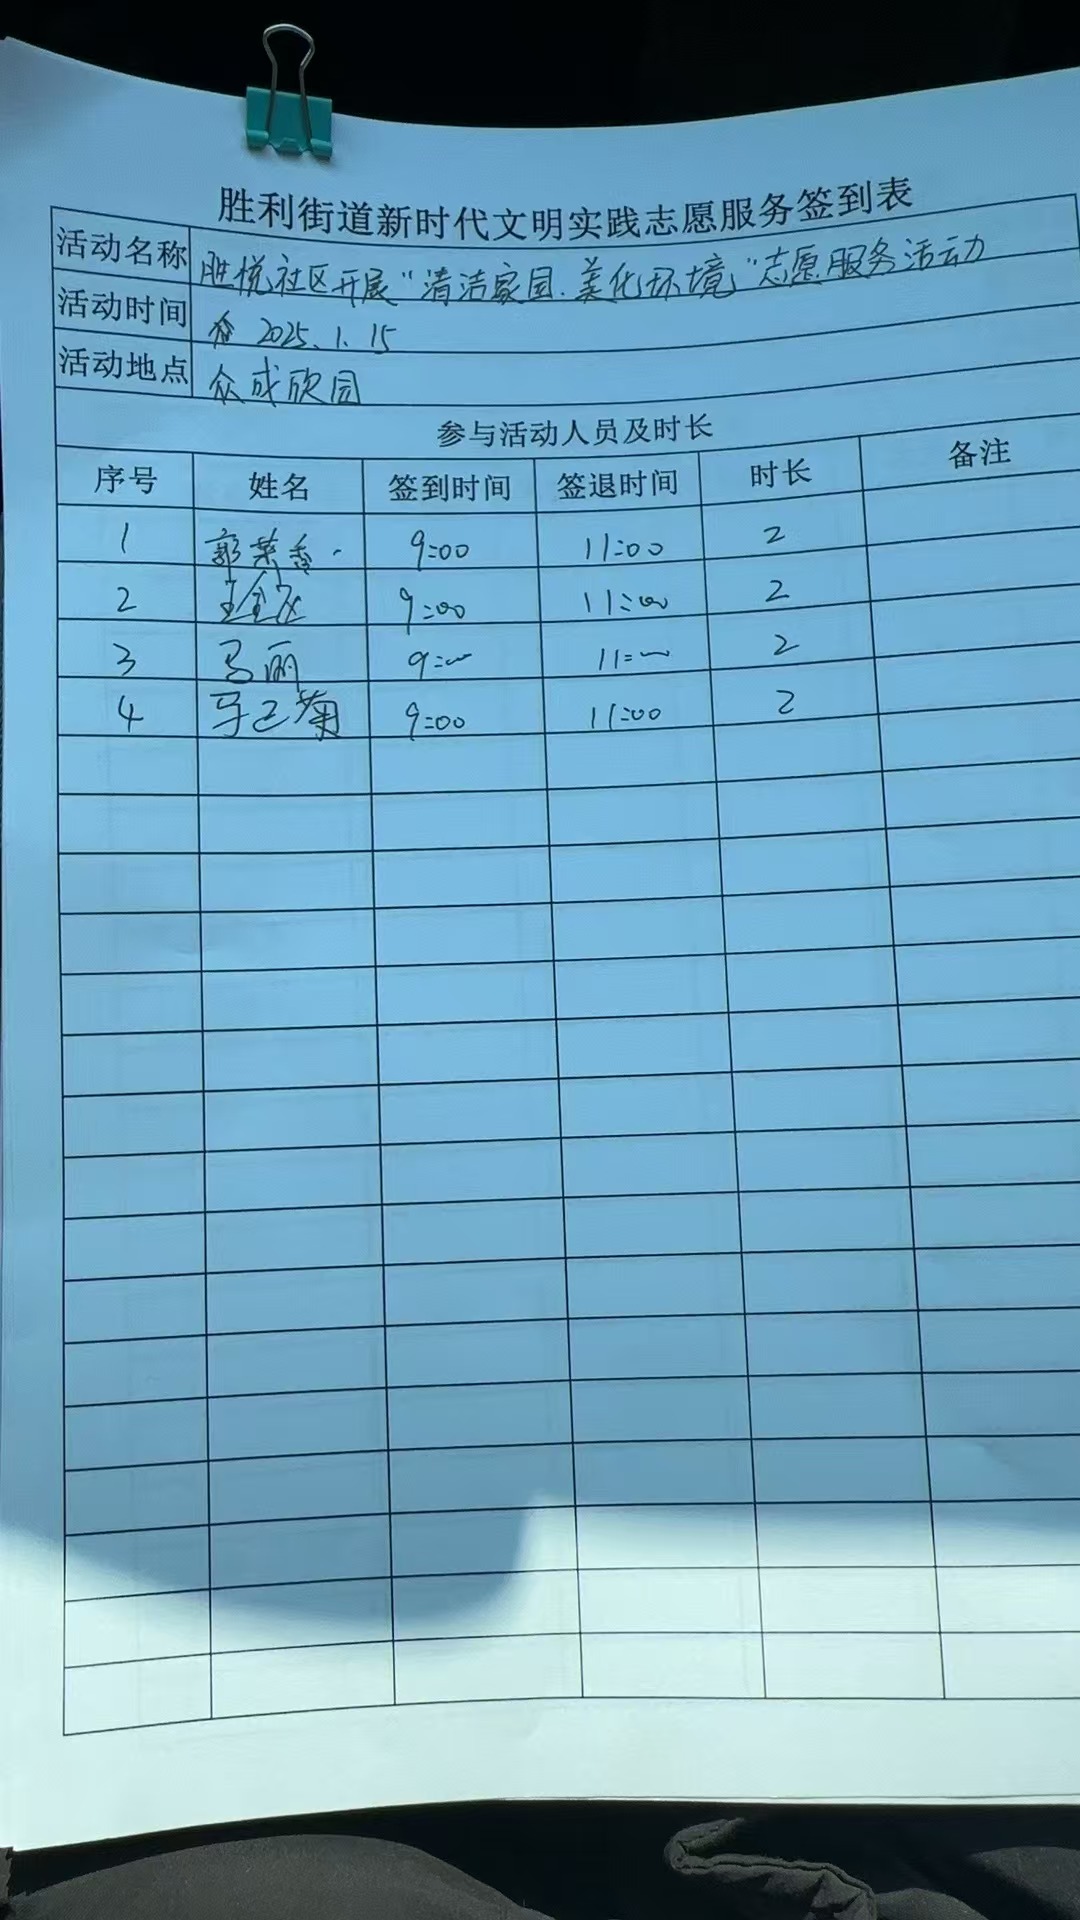 胜利街道新时代文明实践志愿服务签到表
活动名称 胜悦社区开展“清洁家园.美化环境”志愿服务活动
活动时间 2025.1.15
活动地点 众成欣园
参与活动人员及时长
序号 姓名 签到时间 签退时间 时长 备注
1 郭荣香 9:00 11:00 2
2 9:00 11:00 2
3 马丽 9:00 11:00 2
4 9:00 11:00 2